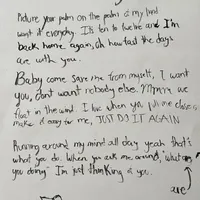 Picture your palm on the palm of my hand
want it everyday. It's ten to twelve and I'm
back home again, oh how fast the days
are with you.
Baby come save me from myself, I want
you, dont want nobody else. Mmm we
float in the wind. I love when you pull me close
make it easy for me, JUST DO IT AGAIN
Running around my mind all day yeah that's
what you do. When you ask me around, "what am
you doing" I'm just thinking of you.
are